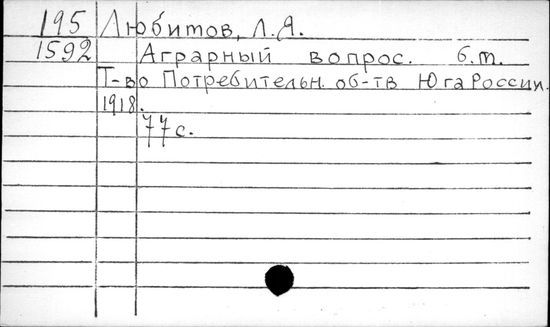 195 Любитов, Л.Я.
1592 Аграрный вопрос. б.м.
Т-во Потребительн. об-тв Юга России.
1918.
77 с.